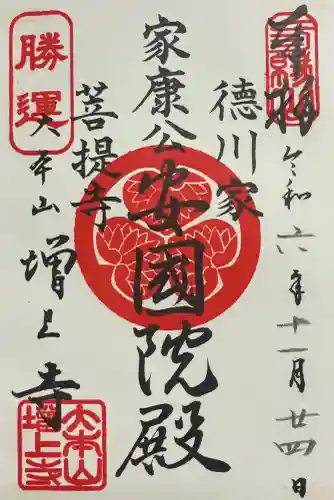 奉拝
令和六年十一月廿四日
徳川家
家康公安國院殿
菩提寺
勝運
大本山増上寺
大本山
増上寺